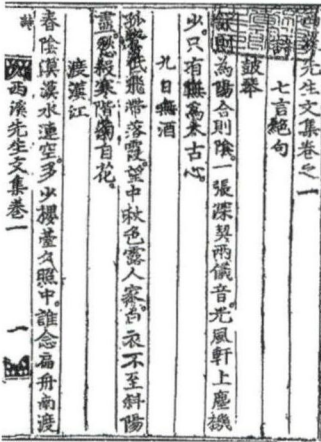 西溪先生文集卷之一
詩
七言絕句
鼓琴
爲陽合則陰一張深契兩儀音光風軒上塵機
少只有無爲太古心
九日無酒
孤鶩低飛帶落霞望中秋色露人家白衣不至斜陽
盡愁殺寒階獨自花
渡漢江
春陰漠漠水連空多少樓臺夕照中誰念扁舟南渡
詩 西溪先生文集卷一 一